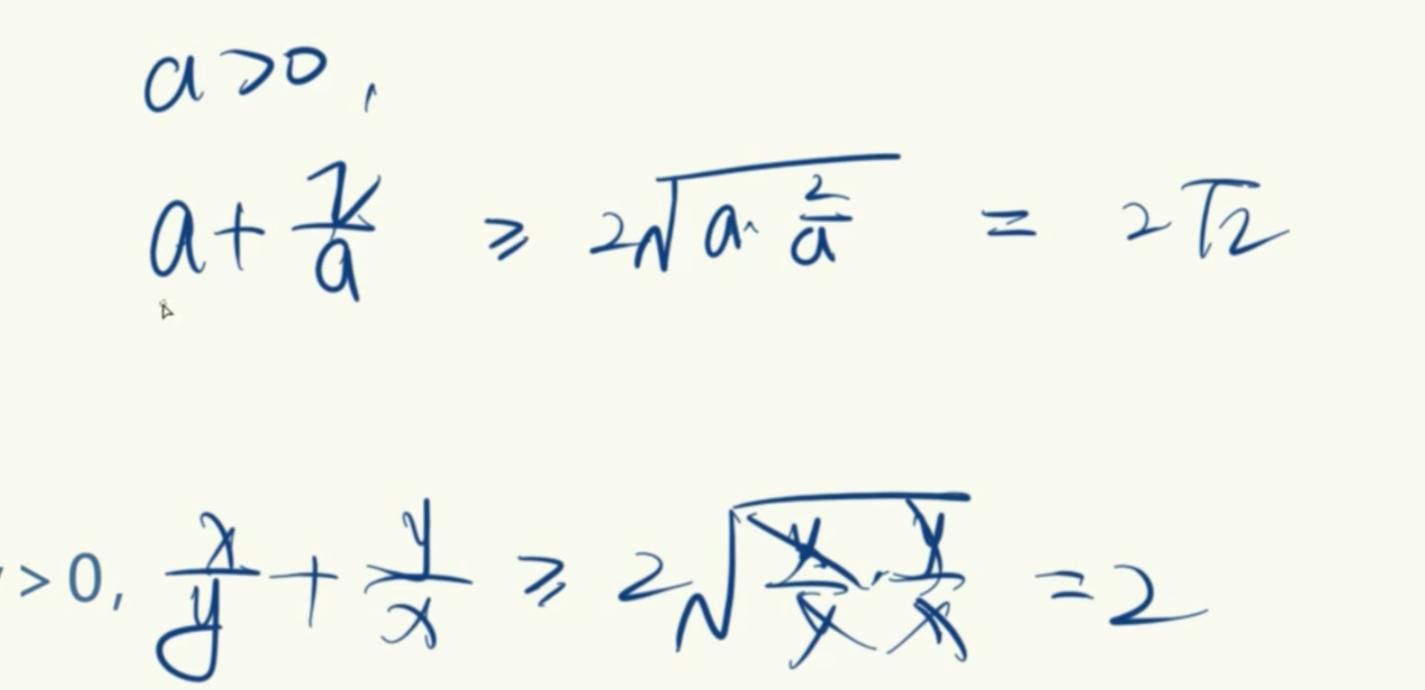 a>0,
a+2/a ≥ 2√(a·2/a) = 2√2
>0, x/y + y/x ≥ 2√(x/y·y/x) = 2